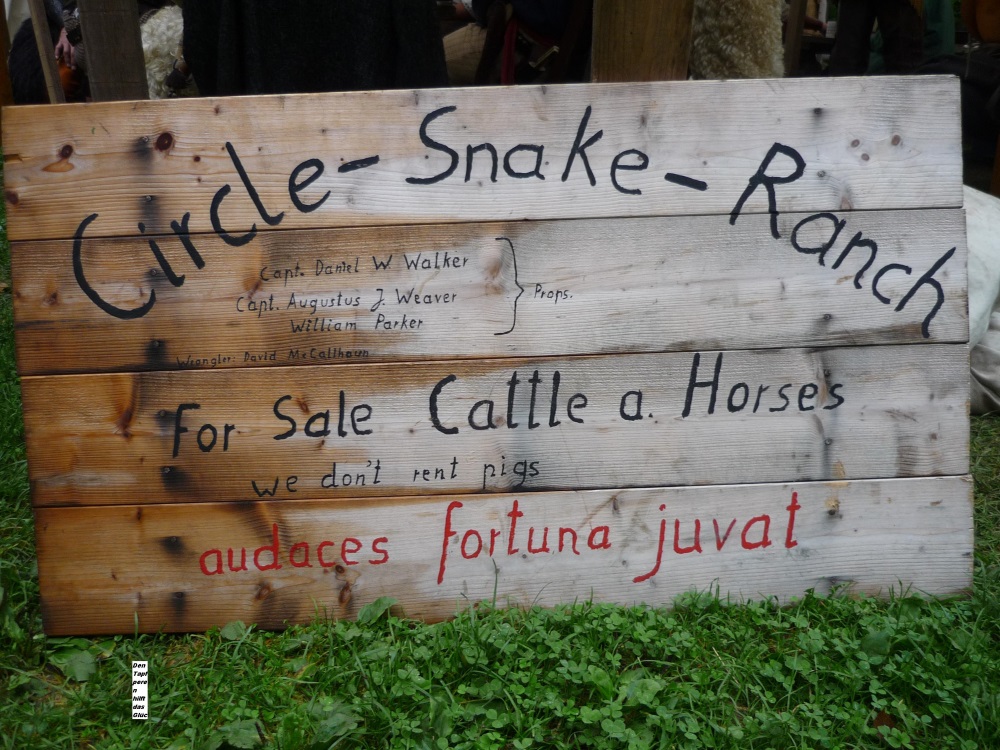 Circle-Snake-Ranch
Capt. Daniel W. Walker
Capt. Augustus J. Weaver
William Parker
Props.
Wrangler: David McCallhaun
For Sale Cattle a. Horses
we don't rent pigs
audaces fortuna juvat
Den
Tapf
pere
n
hilft
das
Glüc